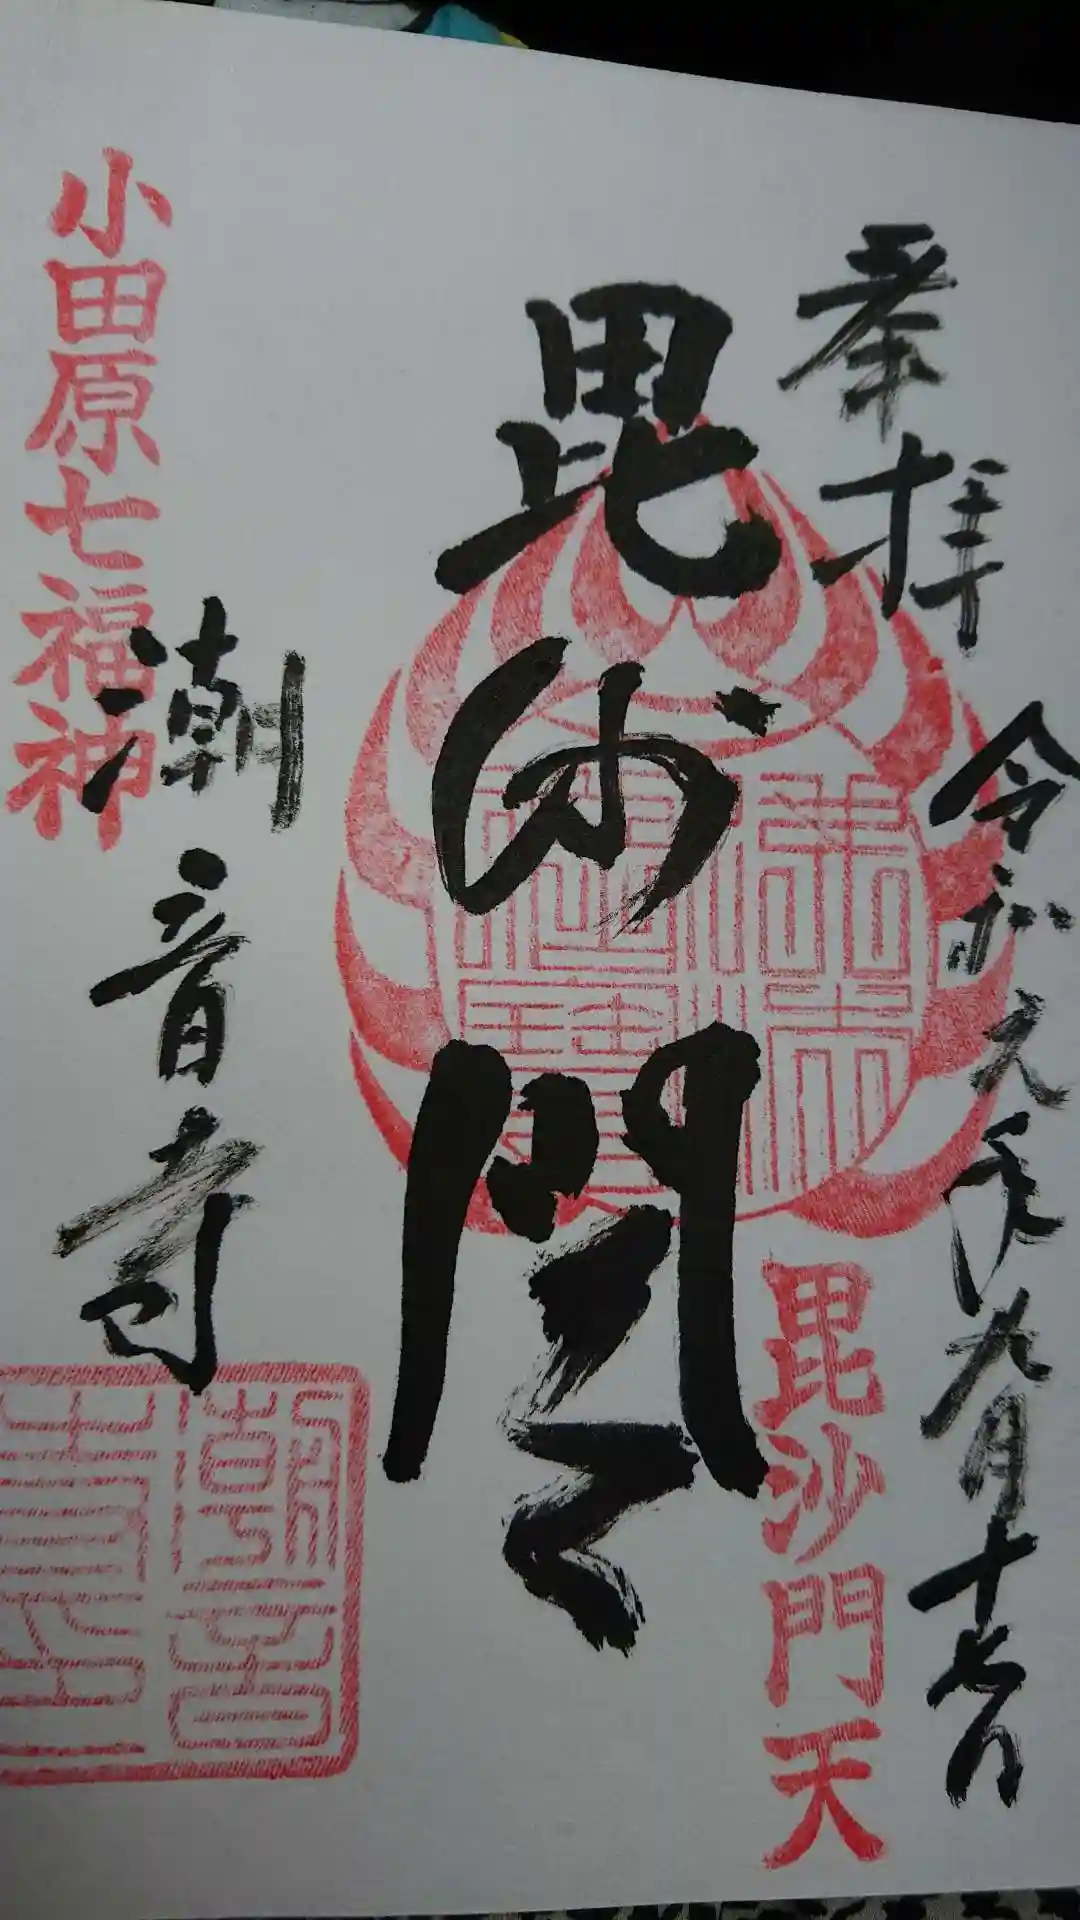 奉拝
令和元年九月十七日
毘沙門天
毘沙門天
潮音寺
小田原七福神